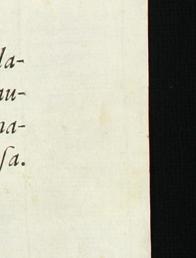 la-
au-
na-
ſa.